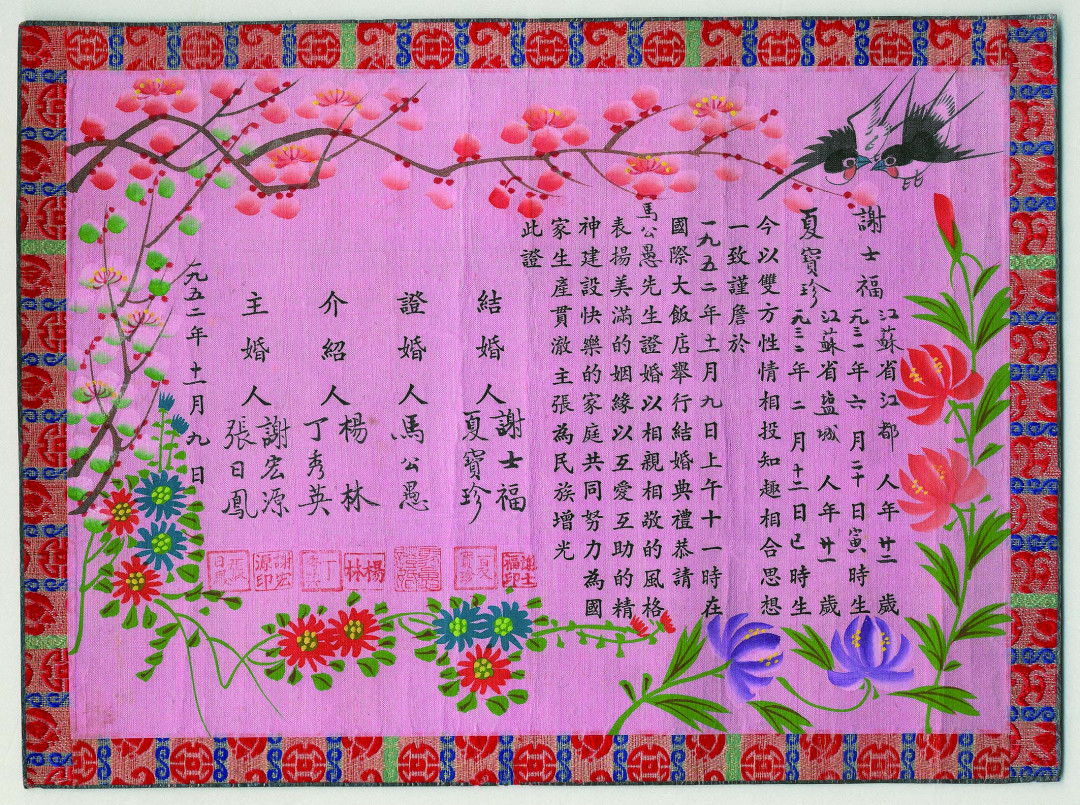 謝士福
江蘇省江都人年廿二歲
一九三一年六月二十日寅時生
夏寶珍
江蘇省盐城人年廿一歲
一九三二年二月十二日巳時生
今以雙方性情相投知趣相合思想
一致謹詹於
一九五二年十一月九日上午十一時在
國際大飯店舉行結婚典禮恭請
馬公愚先生證婚以相親相敬的風格
表揚美滿的姻緣以互愛互助的精
神建設快樂的家庭共同努力為國
家生產貫澈主張為民族增光
此證
結婚人 謝士福
夏寶珍
證婚人 馬公愚
介紹人 楊林
丁秀英
主婚人 謝宏源
張日鳳
一九五二年十一月九日
謝士福印
夏寶珍
楊林
謝宏源印